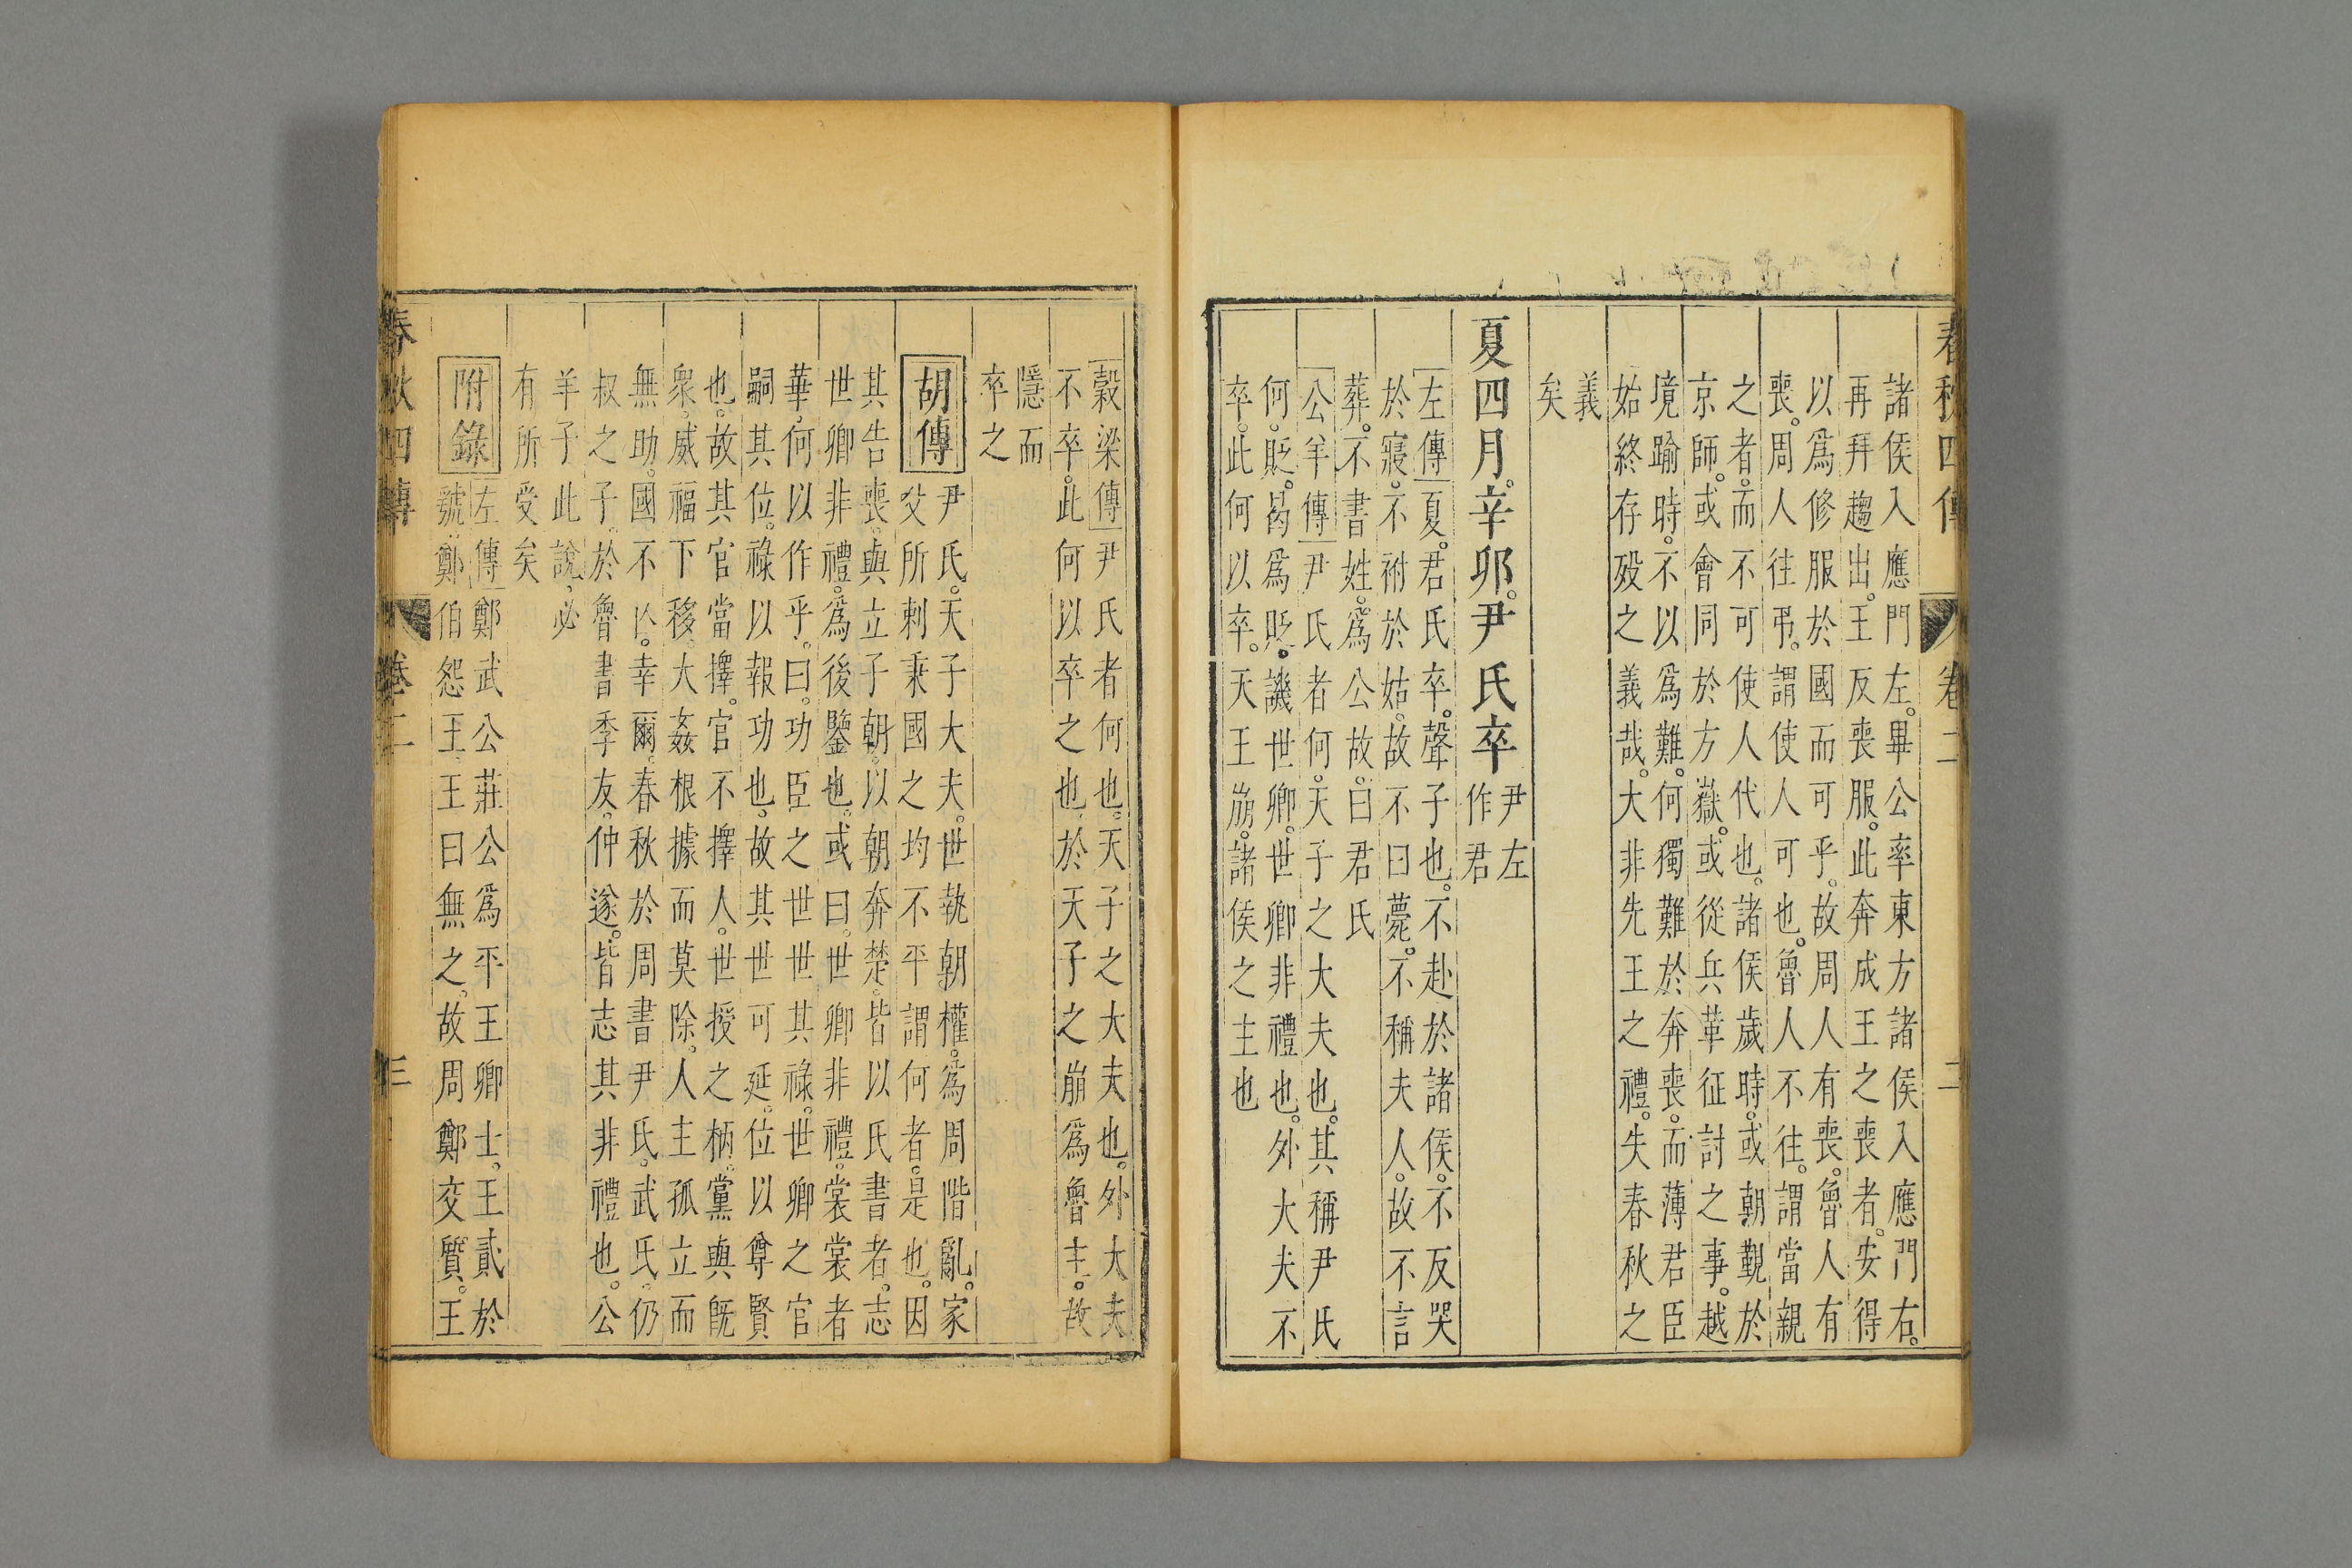 春秋四傳 卷二 二
諸侯入應門左。畢公率東方諸侯入應門右。
再拜趨出。王反喪服。此奔成王之喪者。安得
以爲修服於國而可乎。故周人有喪。魯人有
喪。周人往弔。謂使人可也。魯人不往。謂當親
之者。而不可使人代也。諸侯歲時。或朝覲於
京師。或會同於方嶽。或從兵革征討之事。越
境踰時。不以爲難。何獨難於奔喪。而薄君臣
始終存歿之義哉。大非先王之禮。失春秋之
義
矣
夏四月。辛卯。尹氏卒
尹左
作君
左傳夏。君氏卒。聲子也。不赴於諸侯。不反哭
於寢。不祔於姑。故不曰薨。不稱夫人。故不言
葬。不書姓。爲公故。曰君氏
公羊傳尹氏者何。天子之大夫也。其稱尹氏
何。貶。曷爲貶。譏世卿。世卿非禮也。外大夫不
卒。此何以卒。天王崩。諸侯之主也
穀梁傳尹氏者何也。天子之大夫也。外大夫
不卒。此何以卒之也。於天子之崩爲魯主。故
隱而
卒之
胡傳
尹氏。天子大夫。世執朝權。爲周階亂。家
父所刺秉國之均不平謂何者。是也。因
其告喪。與立子朝。以朝奔楚。皆以氏書者。志
世卿非禮。爲後鑒也。或曰。世卿非禮。裳裳者
華。何以作乎。曰。功臣之世世其祿。世卿之官
嗣其位。祿以報功也。故其世可延。位以尊賢
也。故其官當擇。官不擇人。世授之柄。黨與旣
衆。威福下移。大姦根據而莫除。人主孤立而
無助。國不亡。幸爾。春秋於周書尹氏。武氏。仍
叔之子。於魯書季友。仲遂。皆志其非禮也。公
羊子此說。必
有所受矣
附錄
左傳鄭武公莊公爲平王卿士。王貳於
虢。鄭伯怨王。王曰無之。故周鄭交質。王
春秋四傳 卷二 三